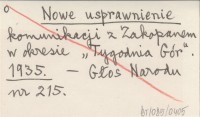 Nowe usprawnienie
komunikacji z Zakopanem
w okresie „Tygodnia Gór".
1935. — Głos Narodu
nr 215.